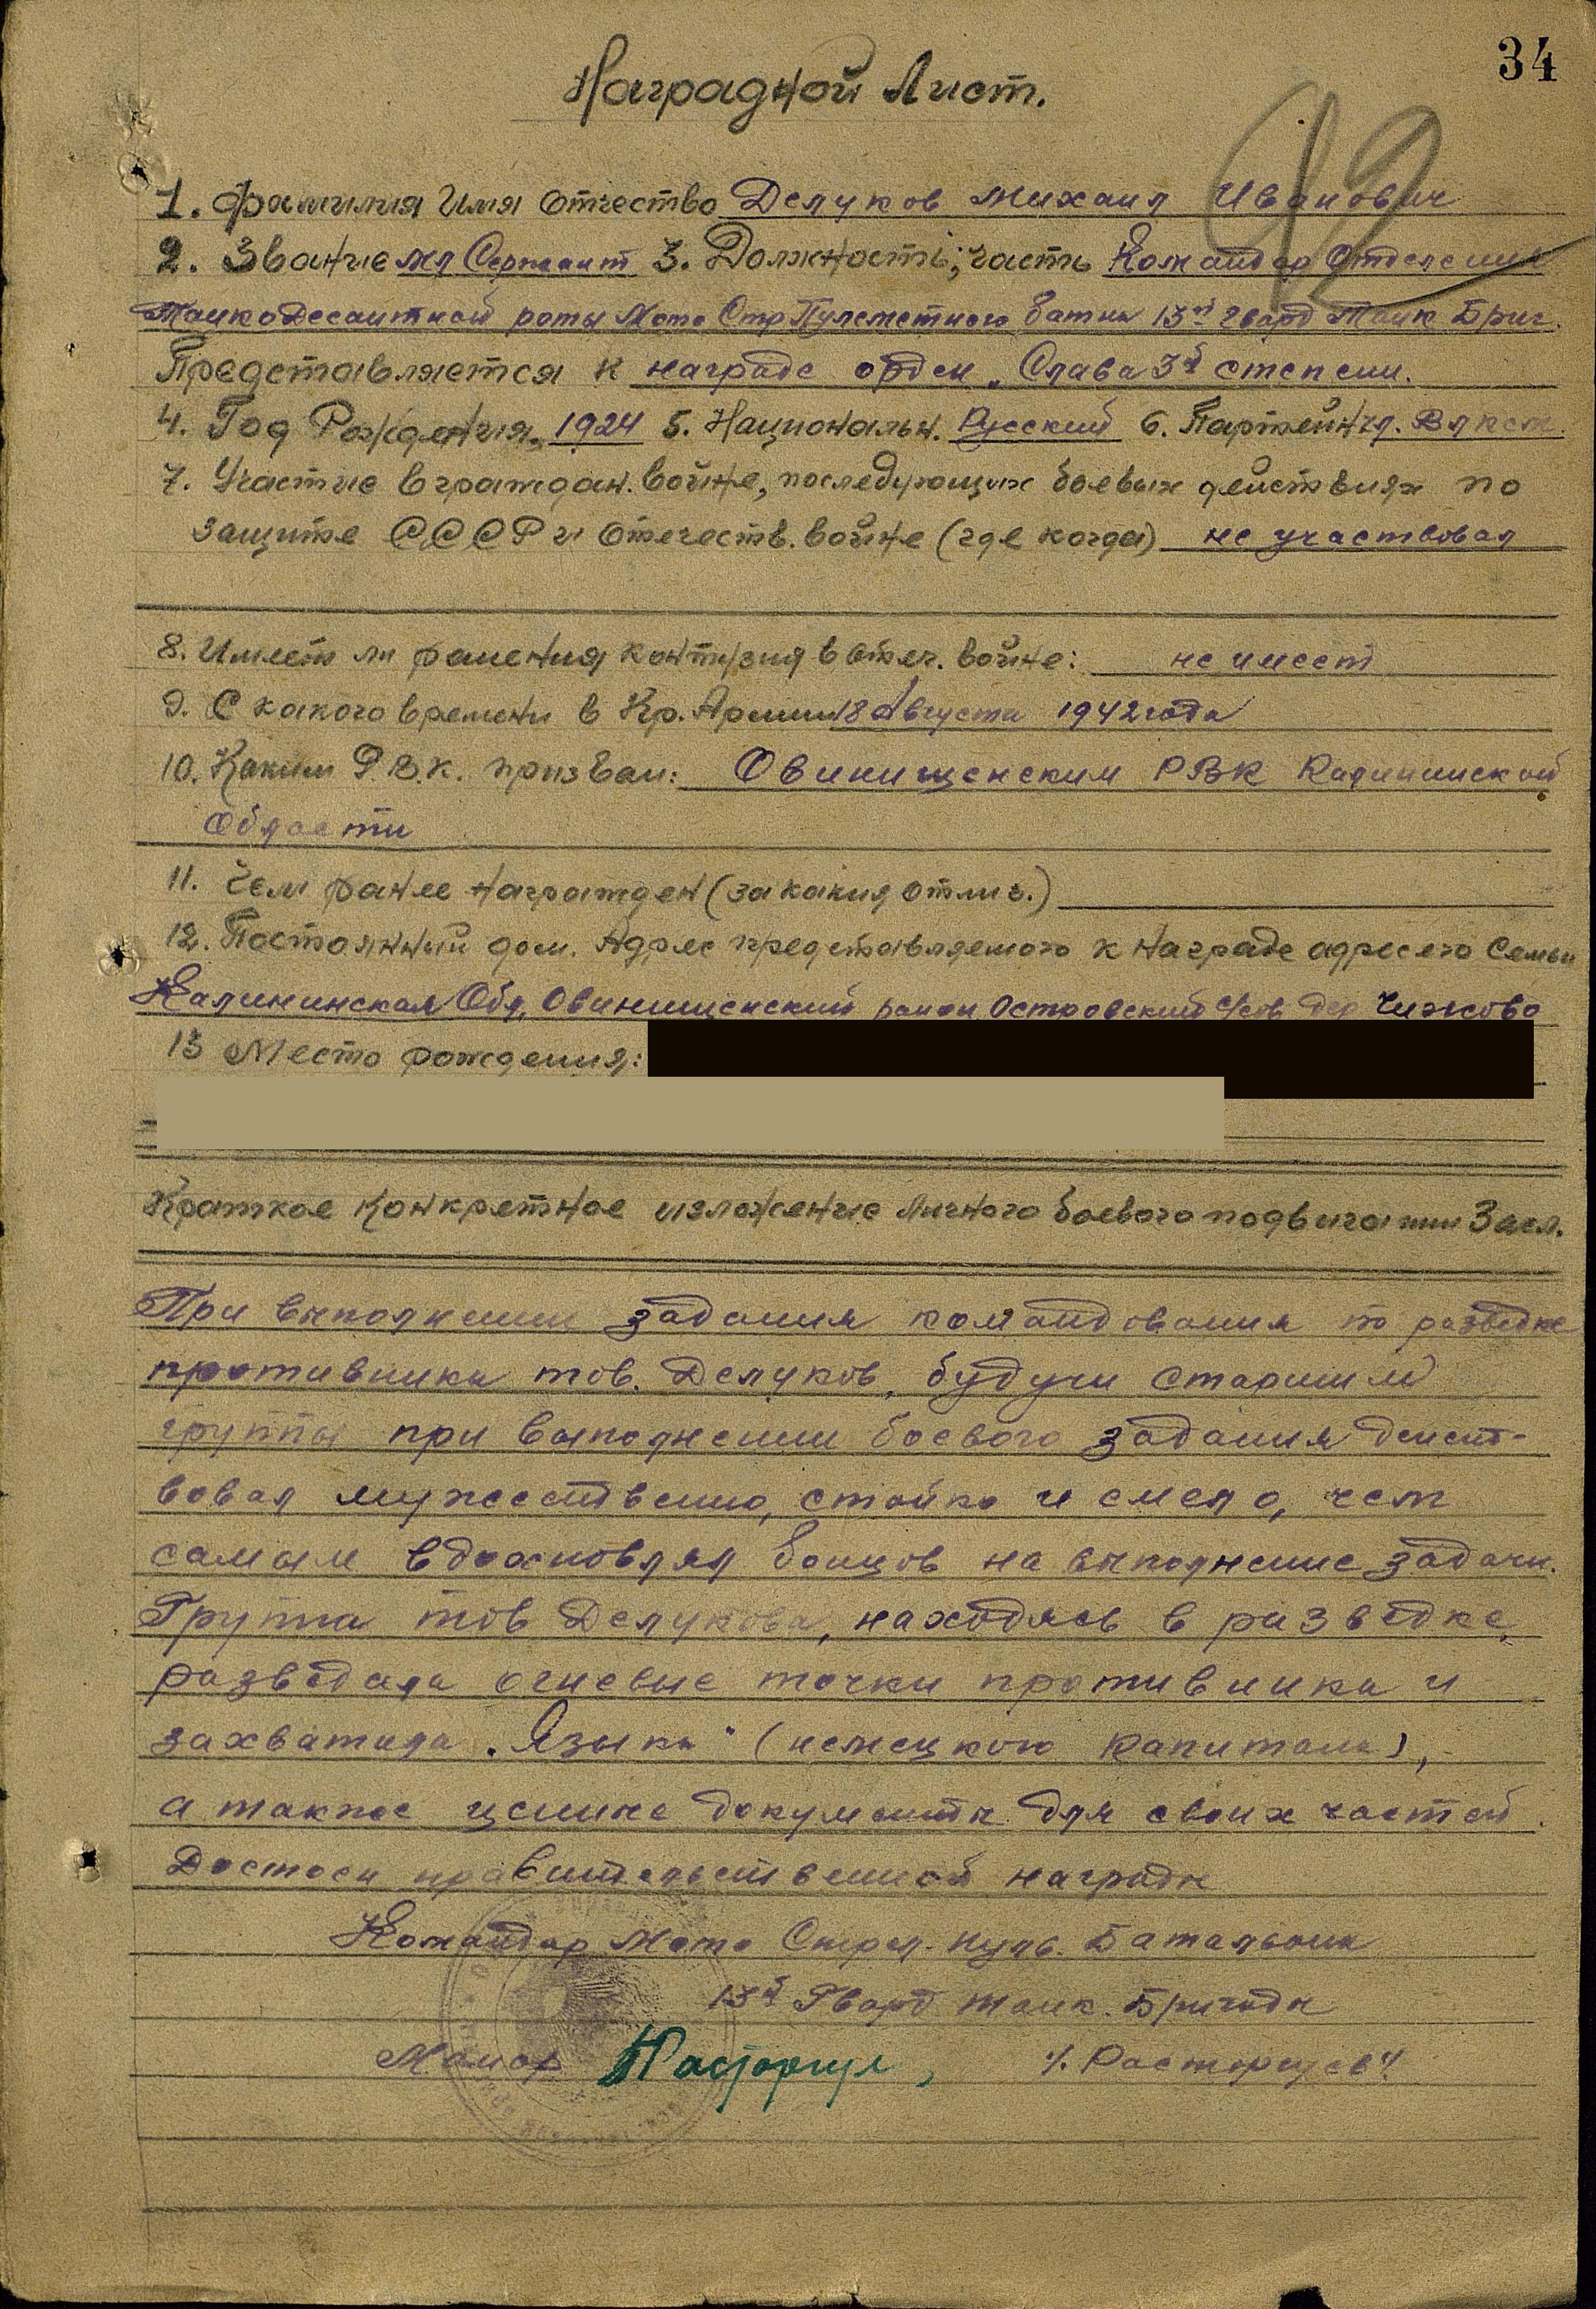 34
Наградной Лист.
1. Фамилия Имя Отчество Делуков Михаил Иванович
2. Звание мл Сержант 3. Должность, часть Командир Отделения
Танкодесантной роты Мото Стр Пулеметного батна 13й Гвард Танк Бриг.
Представляется к награде орден „Слава 3й степени.
4. Год Рождения. 1924 5. Национальн. Русский 6. Партейня. Влксм
7. Участие в граждан. войне, последующих боевых действиях по
защите СССР и отечеств. войне (где когда) не участвовал
8. Имеет ли ранения контузия в отеч. войне: не имеет
9. С какого времени в Кр. Армии 18 Августа 1942 года
10. Каким Р.В.К. призван: Овинищенским РВК Калининской
Области
11. Чем ранее награжден (за какия отлич.)
12. Постоянный дом. Адрес представляемого к награде адрес его Семьи
Калининская Обл, Овинищенский район Островский с/сов дер Чижово
13 Место рождения:
Краткое конкретное изложение личного боевого подвига или Засл.
При выполнении задания командования по разведке
противника тов. Делуков, будучи старшим
группы при выполнении боевого задания дейст-
вовал мужественно, стойко и смело, чем
самым вдохновлял бойцов на выполнение задачи.
Группа тов Делукова, находясь в разведке,
разведала огневые точки противника и
захватила „Языка" (немецкого капитана),
а также ценные документы для своих частей.
Достоен правительственной награды
Командир Мото Стрел. пуль. Батальона
13й Гвард танк. Бригады
Маиор Расторгуе, /. Расторгуев /.